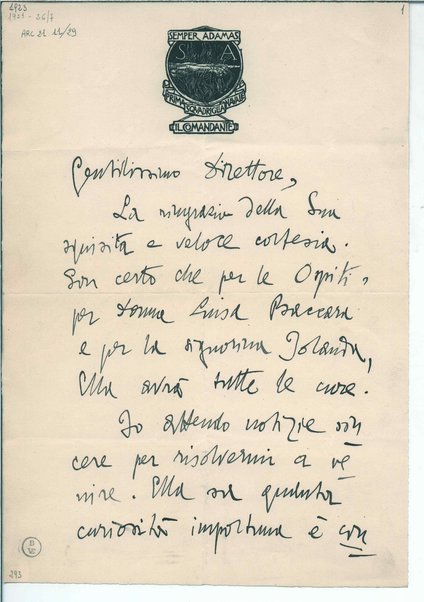 1923
1923 - 26/7
ARC 21 11/29
1
SEMPER ADAMAS
S A
PRIMA SQUADRIGLIA NAVALE
IL COMANDANTE
Gentilissimo Direttore,
La ringrazio della Sua
squisita e veloce cortesia.
Son certo che per le Ospiti,
per donna Luisa Baccara
e per la signorina Jolanda,
Ella avrà tutte le cure.
Io attendo notizie sin
cere per risolvermi a ve
nire. Ella sa quanta
curiosità importuna è con
B
VE
293